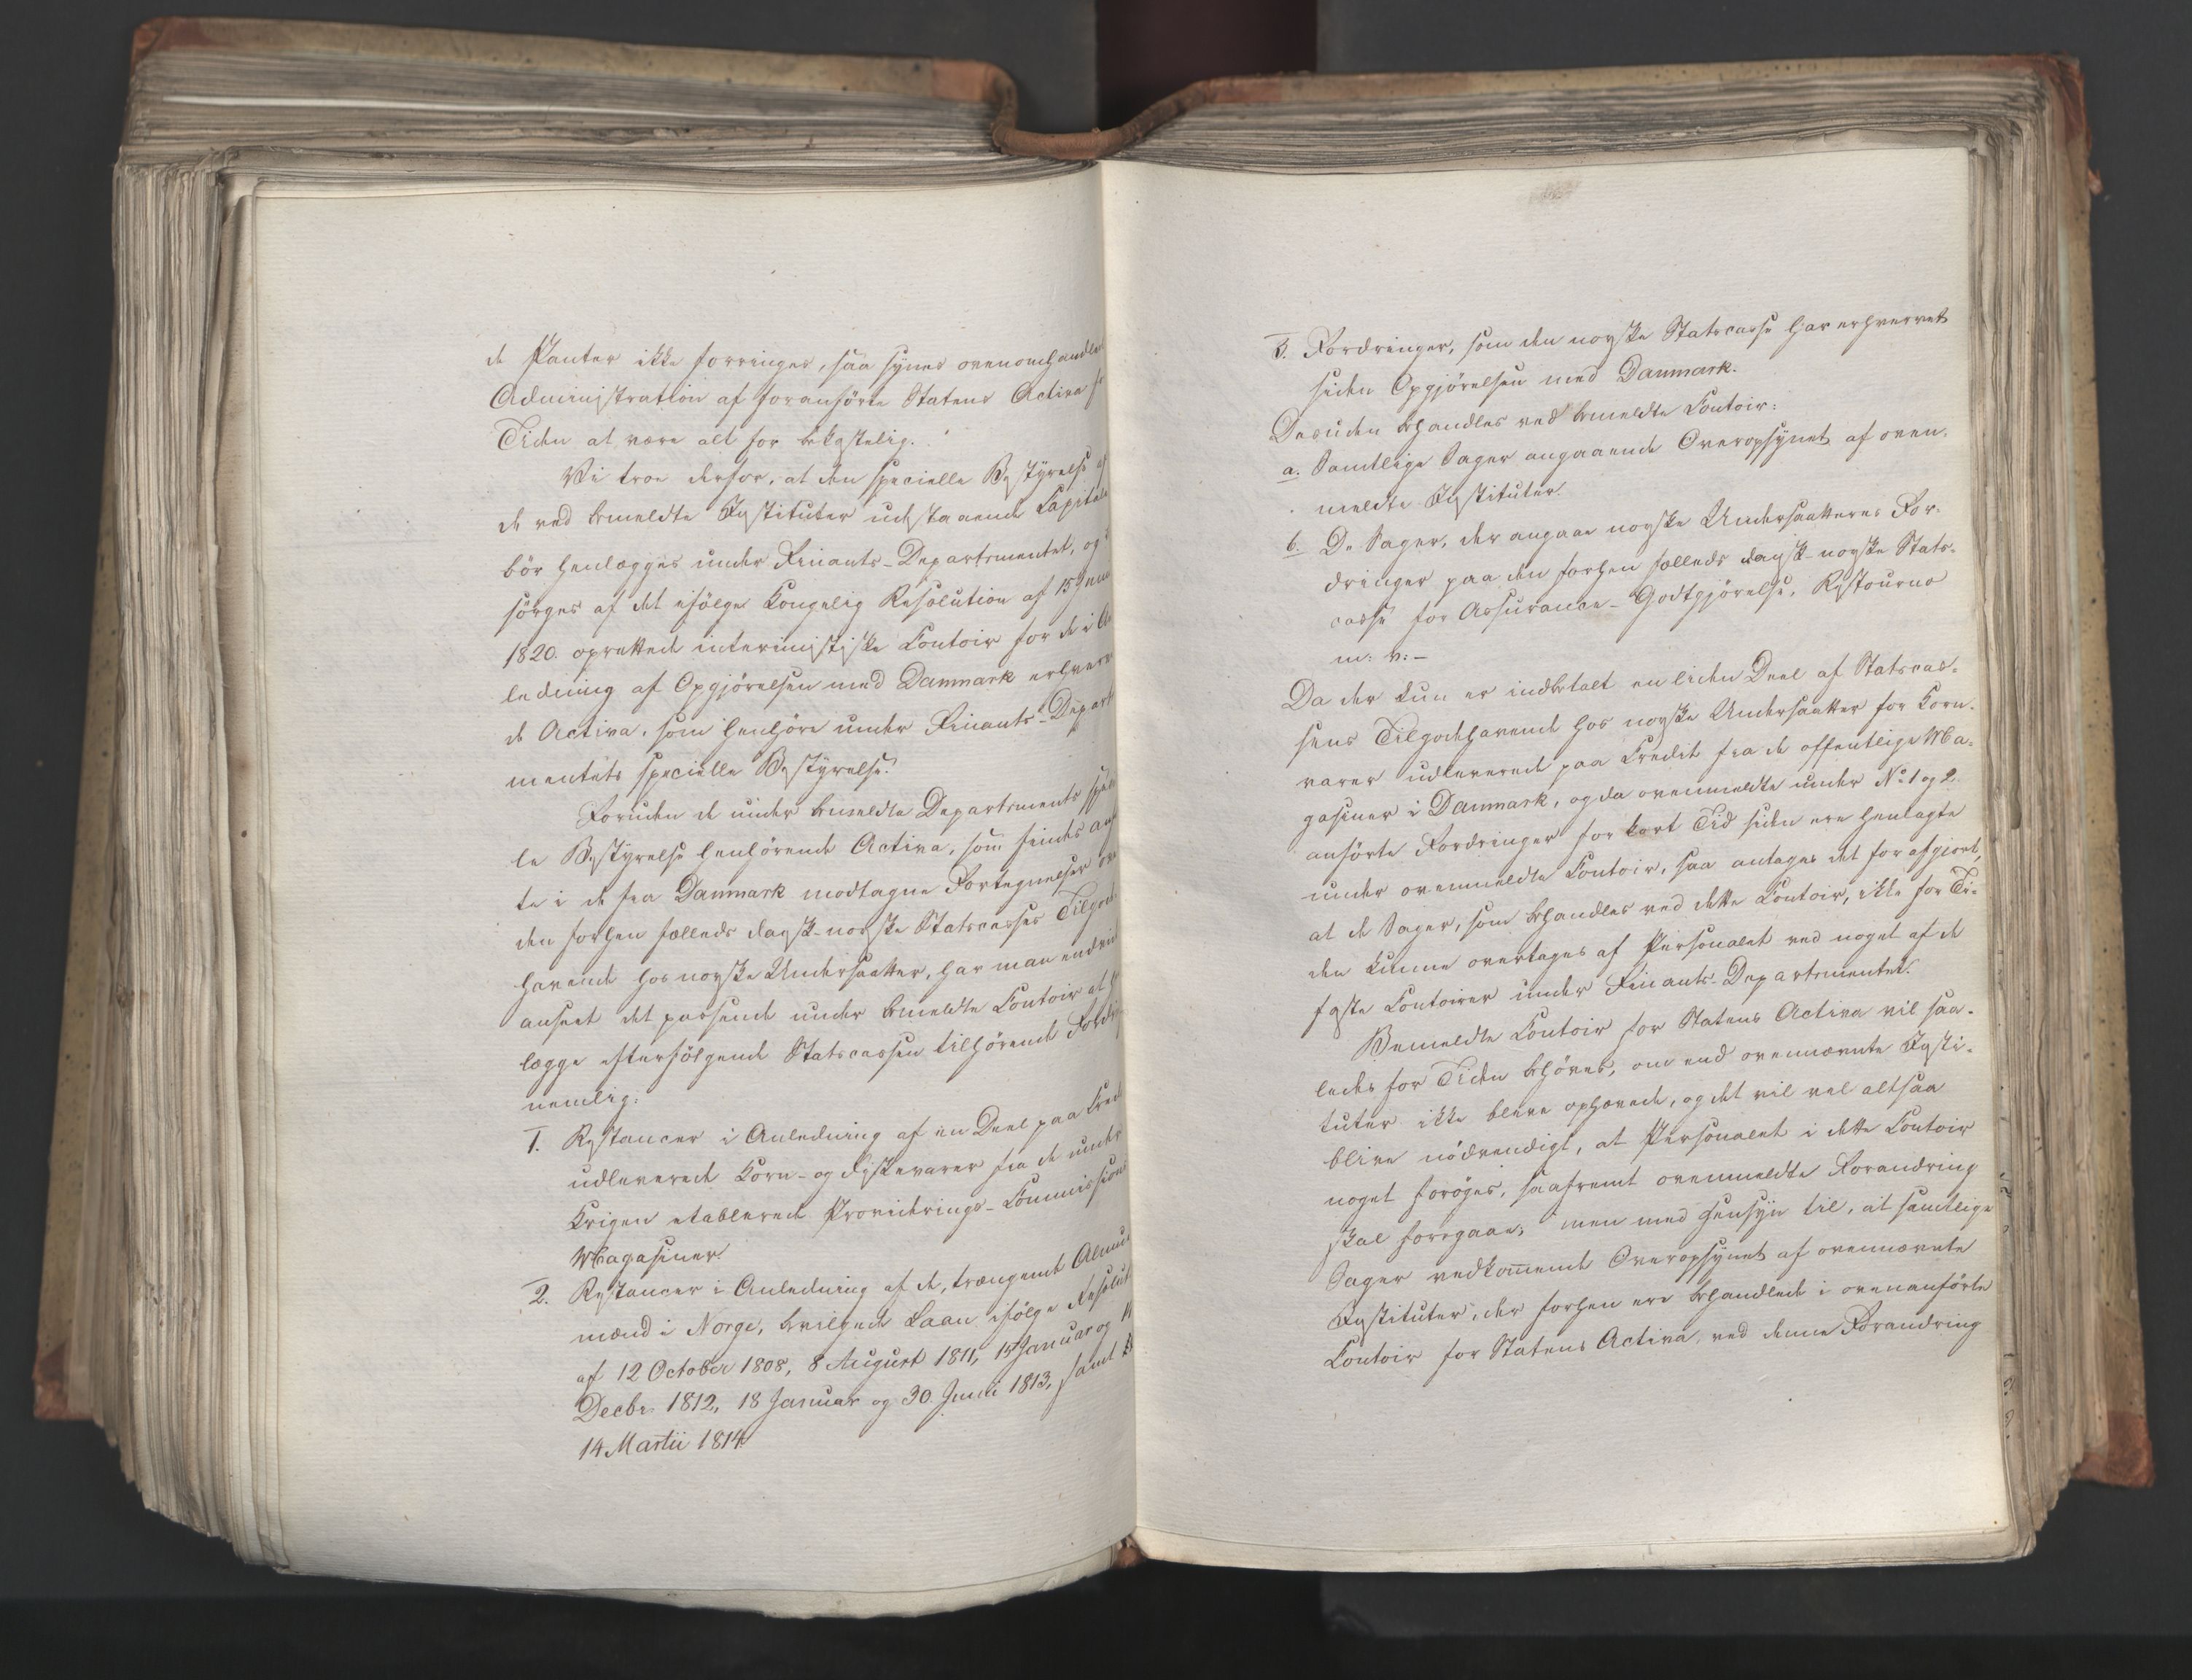 de Panter ikke forringes, saa synes ovenomhandle
Administration af foranførte Statens Activa f
Tiden at være alt for bekostelig.
Vi troe derfor, at den specielle Bestyrelse af
de ved bemeldte Instituter udstaaende Capitale
bør henlægges under Finants-Departementet, og
sørges af det ifølge Kongelig Resolution af 15 Juni
1820. oprettede interimistiske Contoir for de i An
ledning af Opgjørelsen med Danmark erhverv
de Activa, som henhøre under Finants-Depart
mentets specielle Bestyrelse.
Foruden de under bemeldte Departements speci
le Bestyrelse henhørende Activa, som findes anfø
te i de fra Danmark modtagne Fortegnelser ove
den forhen fælleds dansk-norske Statscasses Tilgode
havende hos norske Undersaatter, har man endvid
anseet det passende under bemeldte Contoir at h
lægge efterfølgende Statscassen tilhørende Fordri
nemlig:
1. Restancer i Anledning af en Deel paa Cred
udleverede Korn- og Fiskevarer fra de under
Krigen etablerede Provianterings-Commissions
Magasiner.
2. Restancer i Anledning af de, trængende Almu
mænd i Norge, bevilgede Laan ifølge Resolut
af 12 October 1808, 8 August 1811, 15 Januar og 14
Decbr. 1812, 18 Januar og 30. Juni 1813, samt
14 Martii 1814
3. Fordringer, som den norske Statscasse har erhvervet
siden Opgjørelsen med Danmark.
Desuden behandles ved bemeldte Contoir:
a. Samtlige Sager angaaende Overopsynet af oven-
meldte Instituter.
b. De Sager, der angaae norske Undersaatteres For-
dringer paa den forhen fælleds dansk-norske Stats-
casse for Assurance-Godtgjørelse, Restourno
m: v:-
Da der kun er indbetalt en liden Deel af Statscas-
sens Tilgodehavende hos norske Undersaatter for Korn-
varer udleverede paa Credit fra de offentlige Ma-
gasiner i Danmark, og da ovenmeldte under No. 1 og 2.
anførte Fordringer for kort Tid siden ere henlagte
under ovenmeldte Contoir, saa antages det for afgjort,
at de Sager, som behandles ved dette Contoir, ikke for Ti-
den kunne overtages af Personalet ved noget af de
faste Contoirer under Finants-Departementet.
Bemeldte Contoir for Statens Activa vil saa-
ledes for Tiden behøves, om end ovennævnte Insti-
tuter ikke bleve ophævede, og det vil vel altsaa
blive nødvendigt, at Personalet i dette Contoir
noget forøges, saafremt ovenmeldte Forandring
skal foregaae; men med Hensyn til, at samtlige
Sager vedkommende Overopsynet af ovennævnte
Instituter, der forhen ere behandlede i ovenanførte
Contoir for Statens Activa, ved denne Forandring